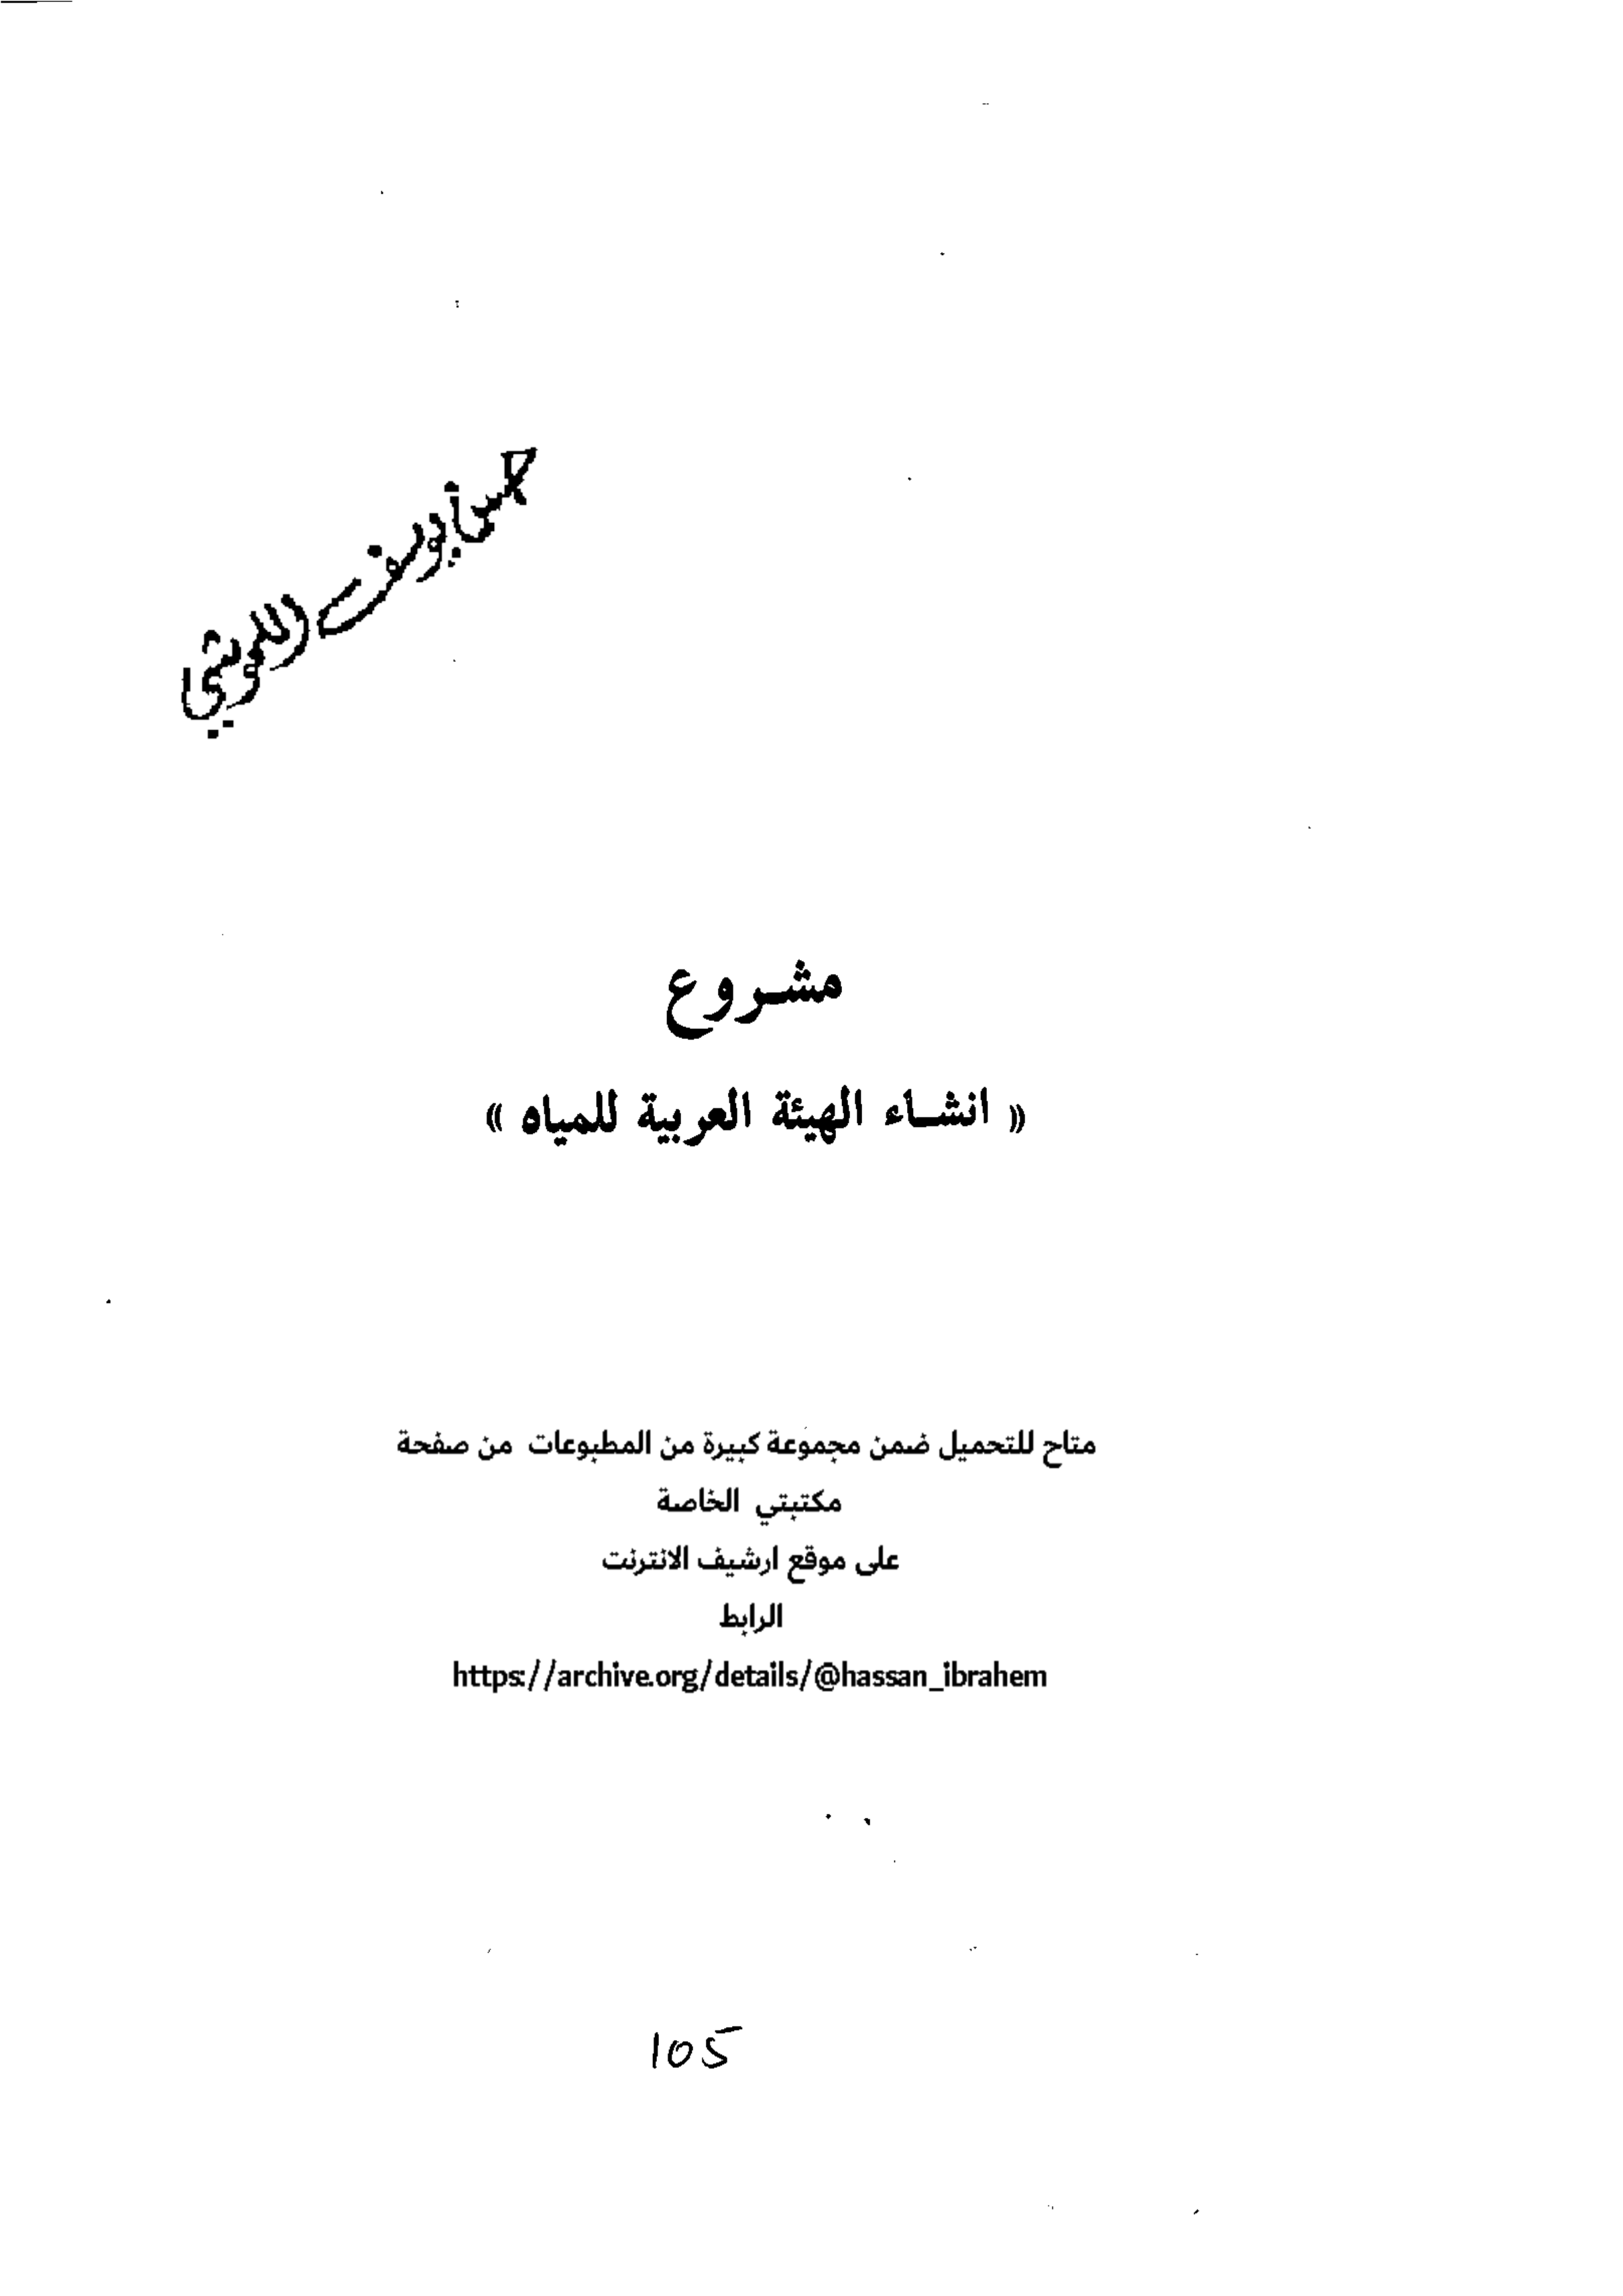 مشروع
« انشاء الهيئة العربية للمياه »
متاح للتحميل ضمن مجموعة كبيرة من المطبوعات من صفحة
مكتبتي الخاصة
على موقع ارشيف الانترنت
الرابط
https://archive.org/details/@hassan_ibrahem
105